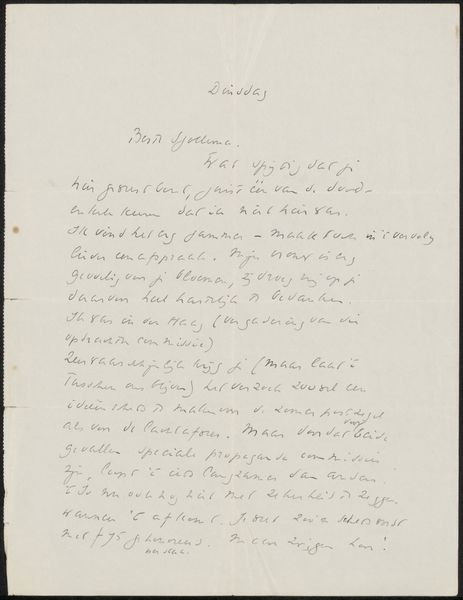 Dinsdag
Beste Sjollema.
Wat spijtig dat je
hier geweest bent, juist één van de dood-
enkele keeren dat ik niet hier was.
Ik vind het erg jammer – maak toch in 't vervolg
liever een afspraak. Mijn vrouw is erg
gevoelig voor je bloemen, zij droeg mij op je
daarvoor heel hartelijk te bedanken.
Ik was in den Haag (vergadering van die
opdrachten commissie)
Zeer waarschijnlijk krijg je (maar laat 't
tusschen ons blijven) het verzoek zoowel een
ideeënschets te maken voor de zomerpostzegel
als voor de . Maar doordat voor beide
gevallen speciale propaganda commissies
zijn, loopt 't iets langzamer dan anders.
't Is nu ook nog niet met zekerheid te zeggen
wanneer 't afkomt. Je wordt
met f 75 gehonoreerd. Maar zwijgen hoor!